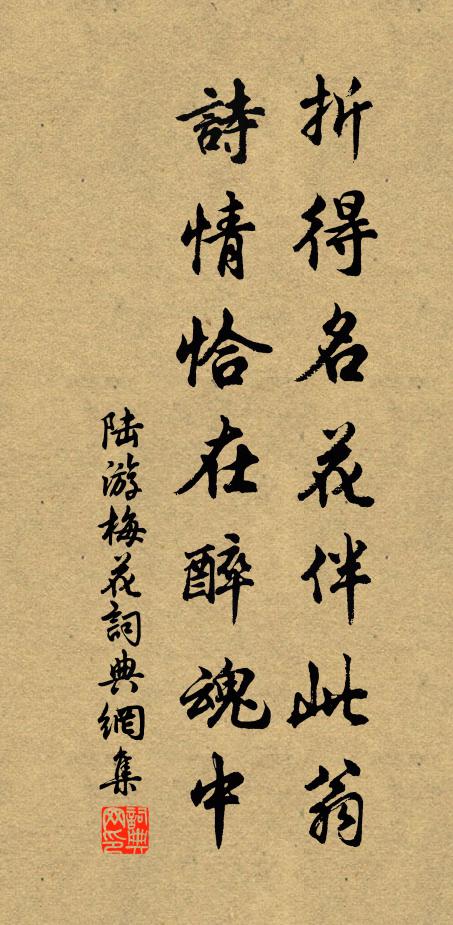 折得名花伴此翁
詩情恰在醉魂中
陆游梅花詞典網集
詞典網印